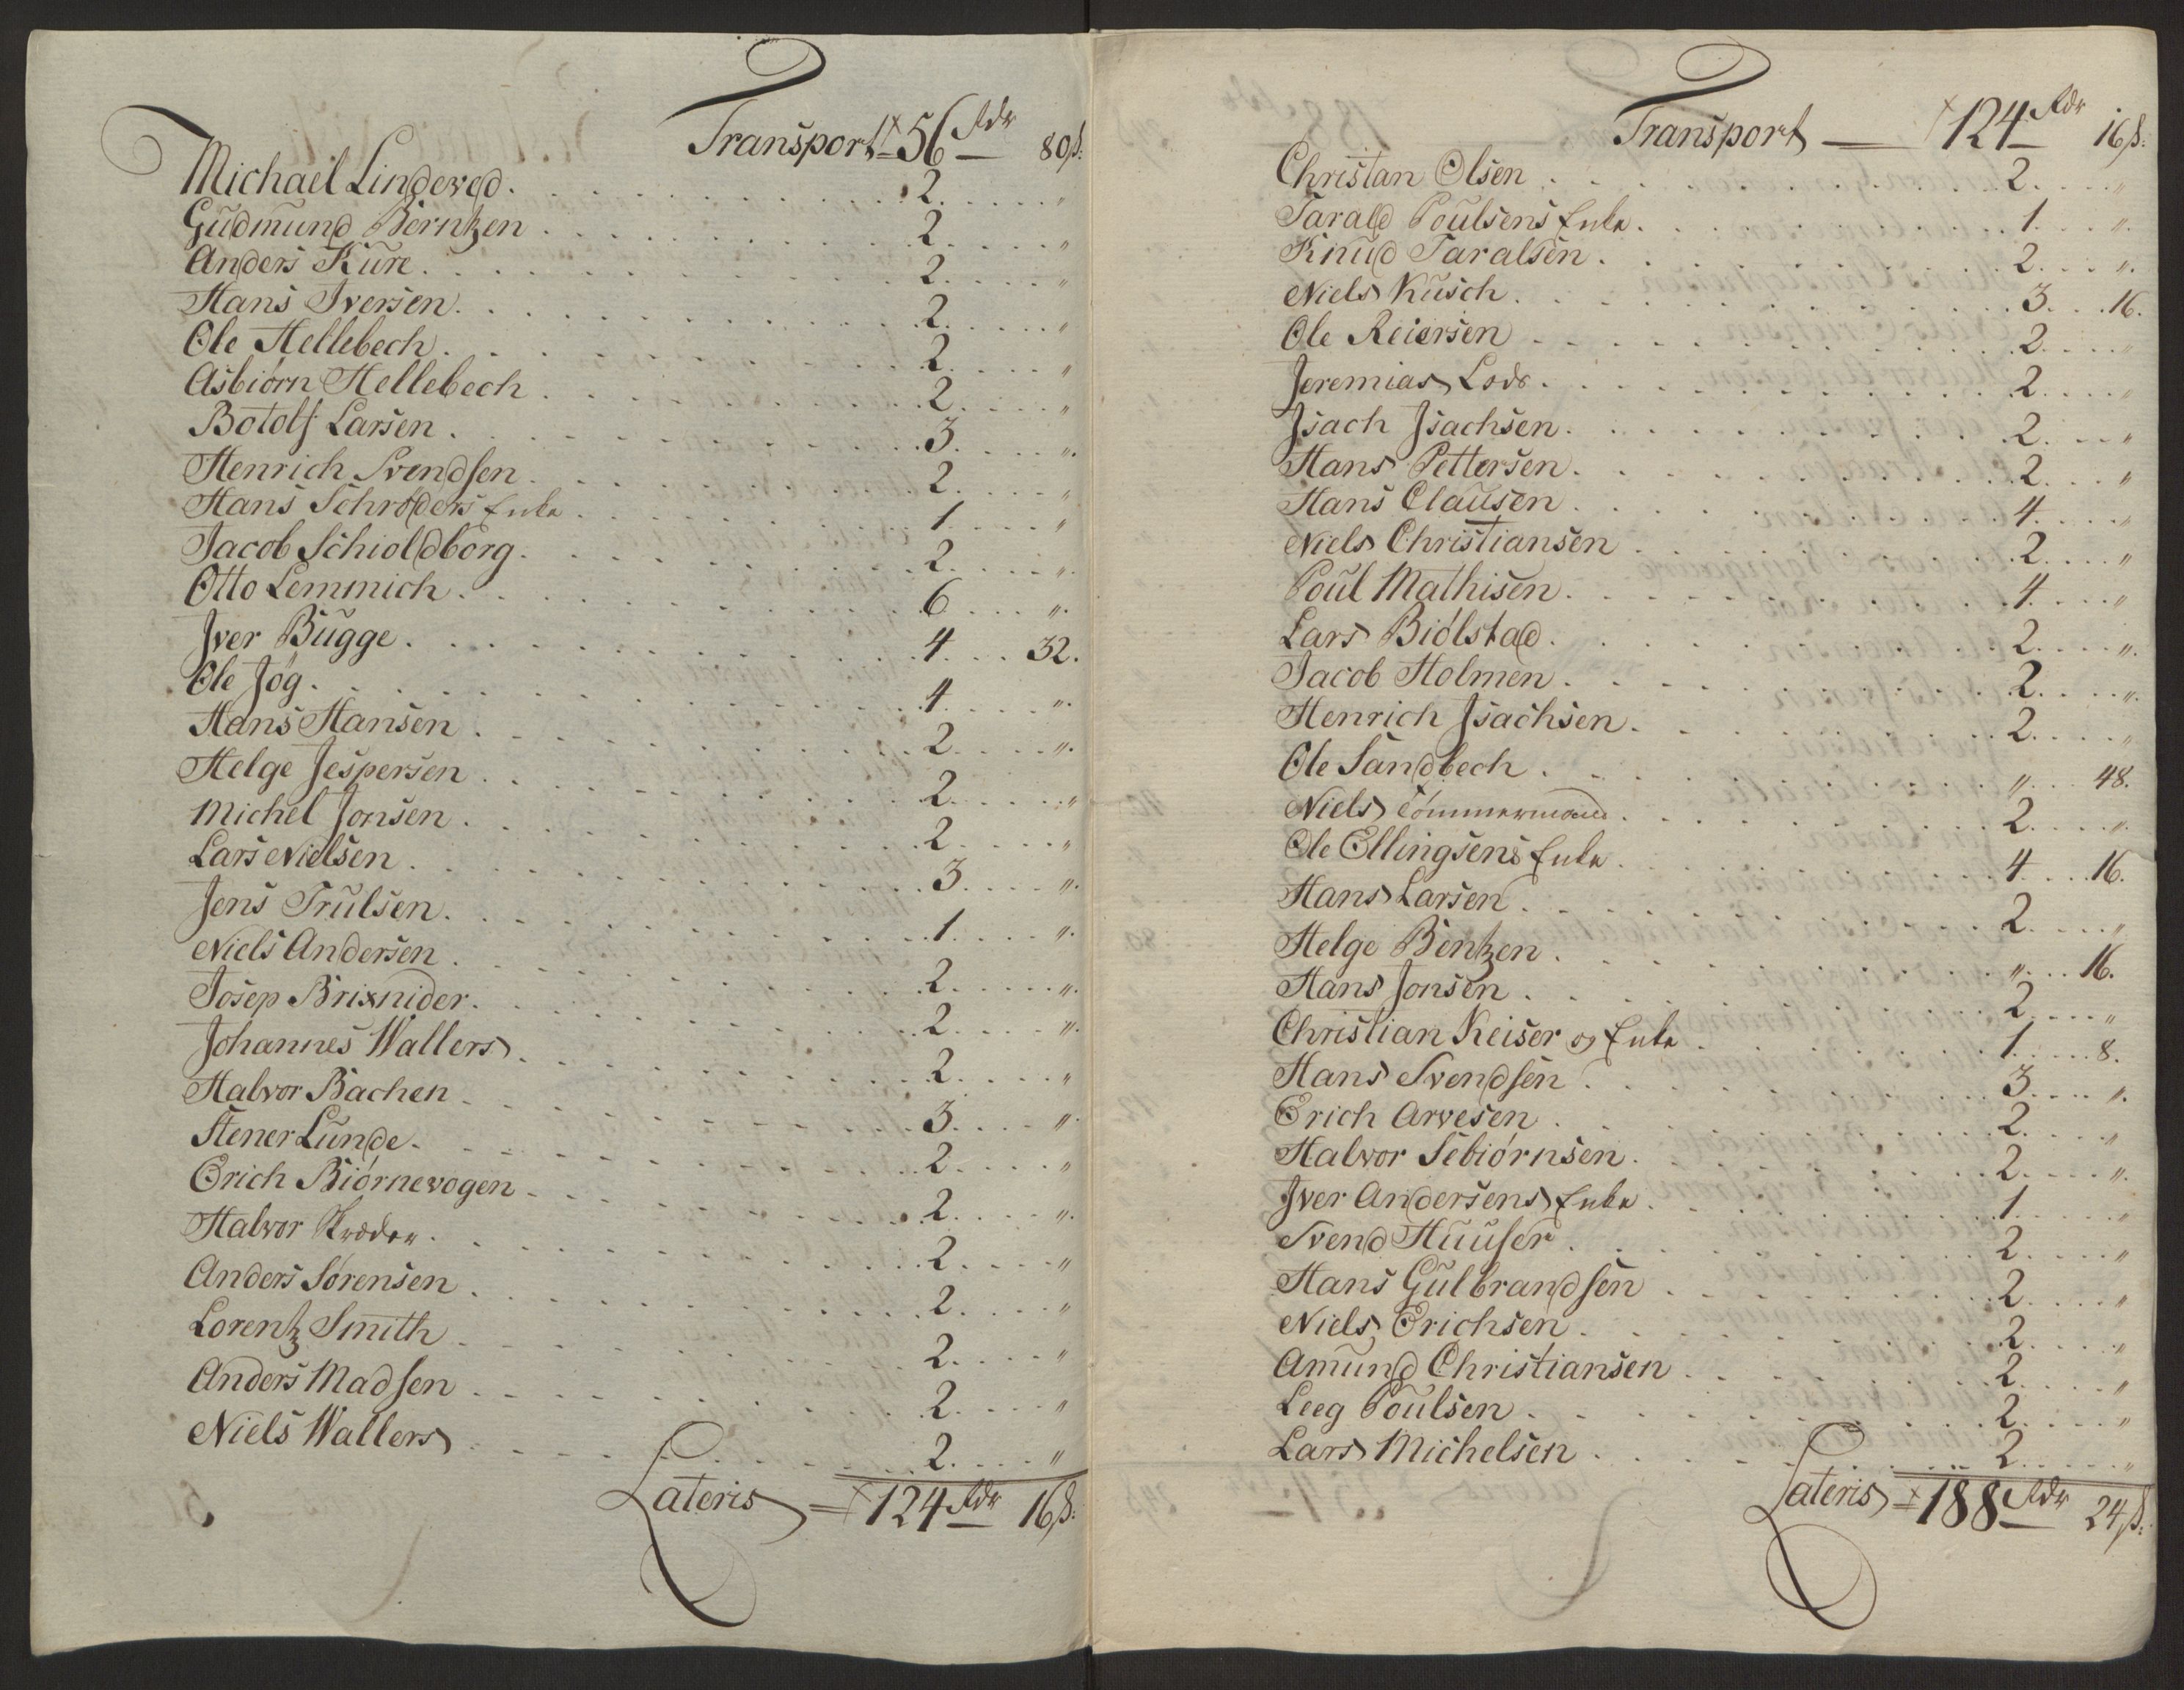 Transport 56 Rdr 80 ß:
Michael Lindeved. 2. "
Gudmund Berntzen. 2. "
Anders Kure. 2. "
Hans Iversen. 2. "
Ole Hellebech. 2. "
Asbiørn Hellebech. 2. "
Botolf Larsen. 3. "
Henrich Svendsen. 2. "
Hans Schrøders Enke. 1. "
Jacob Schioldborg. 2. "
Otto Lemmich. 6. "
Iver Bugge. 4. 32.
Ole Jøg. 4. "
Hans Hansen. 2. "
Helge Jespersen. 2. "
Michel Jonsen. 2. "
Lars Nielsen. 3. "
Jens Trulsen. 1. "
Niels Andersen. 2. "
Josep Brixnider. 2. "
Johannes Wallers. 2. "
Halvor Bachen. 3. "
Stener Lunde. 2. "
Erich Biørnevogen. 2. "
Halvor 2. "
Anders Sørensen. 2. "
Lorentz Smith. 2. "
Anders Madsen. 2. "
Niels Wallers. 2. "
Lateris 124 Rdr 16 ß:
Transport 124 Rdr 16 ß:
Christan Olsen. 2. "
Tarald Poulsens Enke. 1. "
Knud Taralsen. 2. "
Niels Kusch. 3. 16.
Ole Reiersen. 2. "
Jeremias Lods. 2. "
Isach Isachsen. 2. "
Hans Pettersen. 2. "
Hans Clausen. 4. "
Niels Christiansen. 2. "
Poul Mathisen. 4. "
Lars Biølstad. 2. "
Jacob Holmen. 2. "
Henrich Isachsen. 2. "
Ole Sandbech. " 48.
Niels Tømmermand. 2. "
Ole Ellingsens Enke. 4. 16.
Hans Larsen. 2. "
Helge Bentzen. " 16.
Hans Jonsen. 2. "
Christian Keiser og Enke. 1. 8.
Hans Svendsen. 3. "
Erich Arvesen. 2. "
Halvor Sebiørnsen. 2. "
Iver Andersens Enke. 1. "
Svend Huuser. 2. "
Hans Gulbrandsen. 2. "
Niels Erichsen. 2. "
Amund Christiansen. 2. "
Leeg Poulsen. 2. "
Lars Michelsen. 2. "
Lateris 188 Rdr 24 ß: